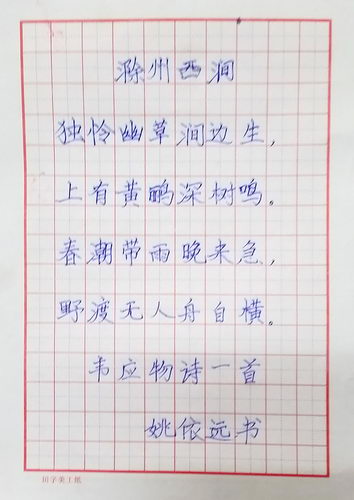 滁州西涧
独怜幽草涧边生，
上有黄鹂深树鸣。
春潮带雨晚来急，
野渡无人舟自横。
韦应物诗一首
姚依远书
田字美工纸